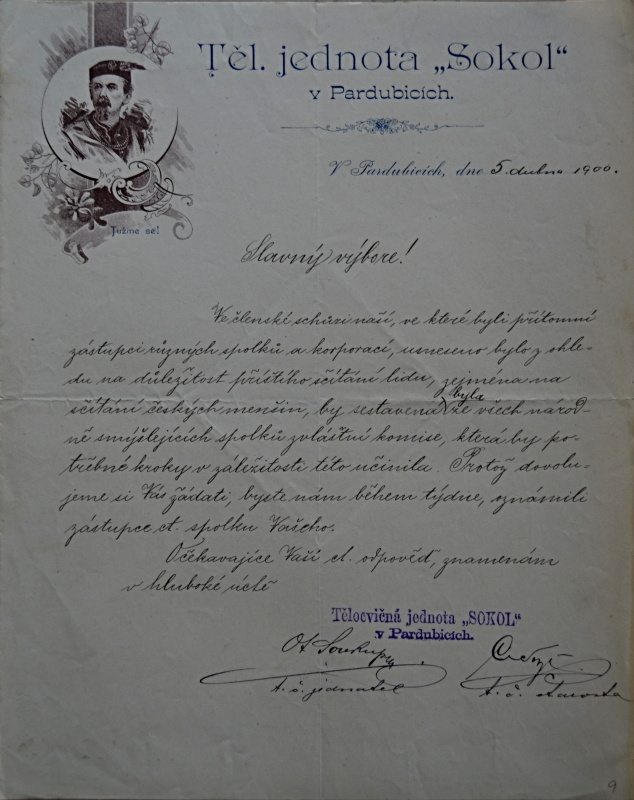 Těl. jednota „Sokol“
v Pardubicích.
V Pardubicích, dne 5. dubna 1900.
Tužme se!
Slavný výbore!
Ve členské schůzi naší, ve které byli přítomni
zástupci různých spolků a korporací, usneseno bylo z ohle-
du na důležitost příštího sčítání lidu, zejména na
sčítání českých menšin, by sestavena byla ze všech národ-
ně smýšlejících spolků zvláštní komise, která by po-
třebné kroky v záležitosti této učinila. Protož dovolu-
jeme si Vás žádati, byste nám během týdne, oznámili
zástupce ct. spolku Vašeho.
Očekavajíce Vaší ct. odpověď, znamenám
v hluboké úctě
Tělocvičná jednota „SOKOL“
v Pardubicích.
Ot. Soukup
t. č. jednatel
t. č. starosta
9